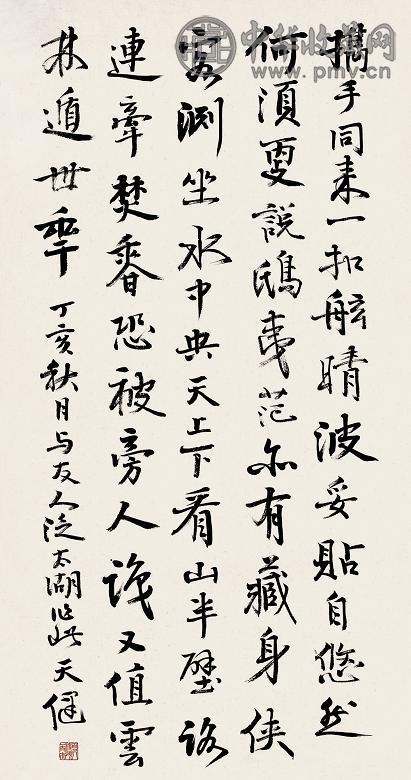 中华收藏网
www.pmv.cn
攜手同来一扣舷晴波妥貼自悠然
何須更説鴟夷范亦有藏身俠
客淵坐水中央天上下看山半壁路
連牽焚香恐被旁人識又值雲
林遁世年 丁亥秋月与友人泛太湖作此 天健